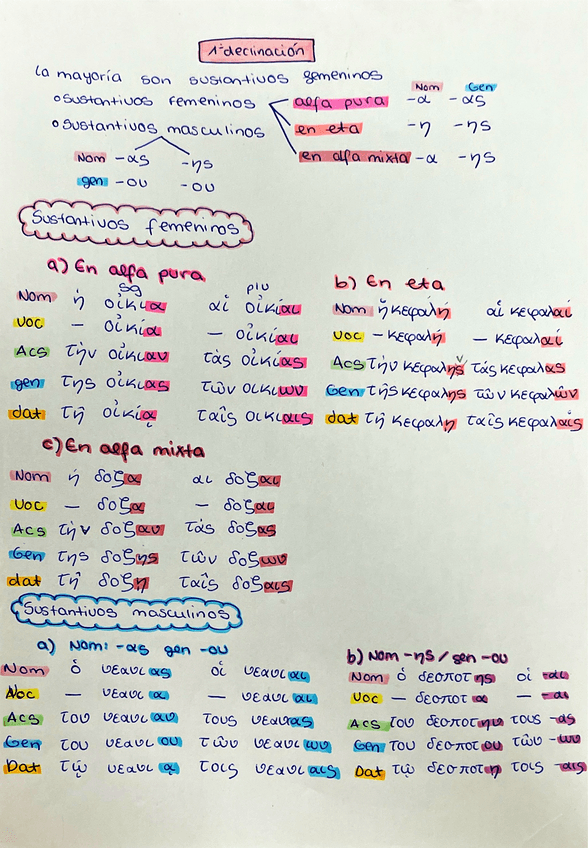 1ª declinación
La mayoría son sustantivos femeninos
Nom Gen
o Sustantivos femeninos alfa pura -α -ας
o Sustantivos masculinos en eta -η -ης
en alfa mixta -α -ης
Nom -ας -ης
gen -ου -ου
Sustantivos femeninos
a) En alfa pura
sg plu
Nom ἡ οἰκία αἱ οἰκίαι
Voc — οἰκία — οἰκίαι
Acs τὴν οἰκιαν τὰς οἰκίας
gen της οἰκιας τῶν οικιων
dat τῇ οἰκίᾳ ταῖς οικιαις
b) En eta
Nom ἡ κεφαλή αἱ κεφαλαί
Voc — κεφαλή — κεφαλαί
Acs τὴν κεφαλης ν τάς κεφαλας
Gen τῆς κεφαλης τῶν κεφαλῶν
dat τῇ κεφαλῃ ταῖς κεφαλαῖς
c) En alfa mixta
Nom ἡ δοξα αι δοξαι
Voc — δοξα — δοξαι
Acs τὴν δοξαν τάς δοξας
Gen της δοξης τῶν δοξων
dat τῇ δοξῃ ταῖς δοξαις
Sustantivos masculinos
a) Nom: -ας gen -ου
Nom ὁ νεανιας οἱ νεανιαι
Voc — νεανι α — νεανι αι
Acs του νεανι αν τους νεανιας
Gen του νεανι ου τῶν νεανι ων
Dat τῷ νεανι ᾳ τοις νεανι αις
b) Nom -ης / gen -ου
Nom ὁ δεσποτ ης οἱ -αι
Voc — δεσποτ α — -αι
Acs του δεσποτ ην τους -ας
Gen του δεσποτ ου τῶν -ων
Dat τῷ δεσποτ ῃ τοις -αις